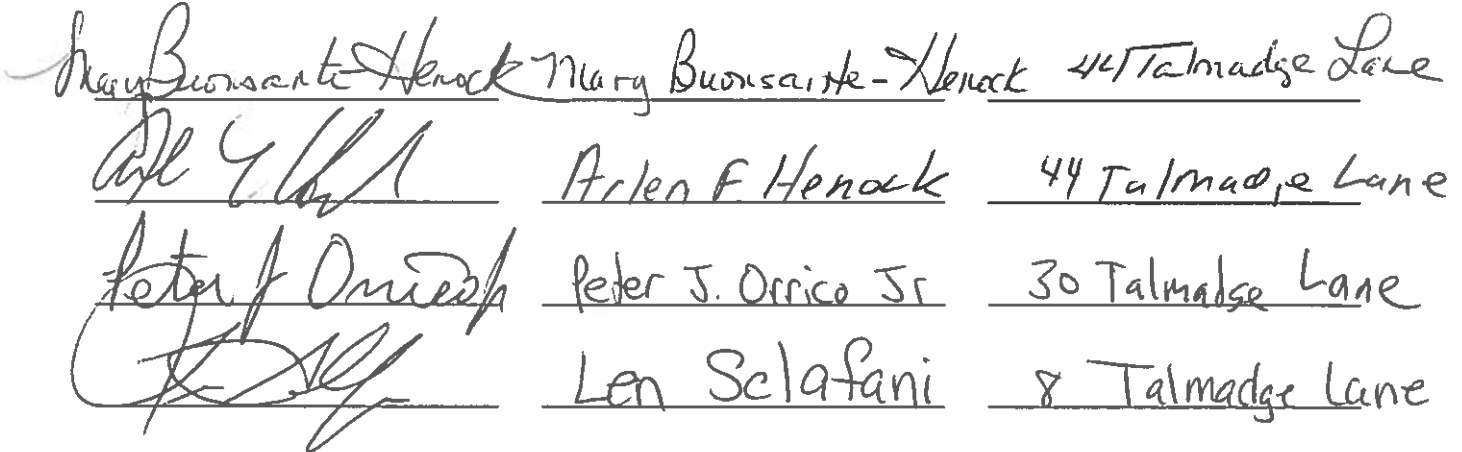 Mary Buonsante-Henock Mary Buonsante-Henock 44 Talmadge Lane
Arlen F. Henock 44 Talmadge Lane
Peter J Orrico Jr Peter J. Orrico Jr 30 Talmadge Lane
Len Sclafani 8 Talmadge Lane